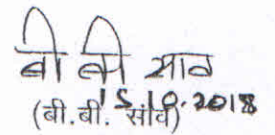 बी बी साव
15.10.2018
(बी.बी. साव)